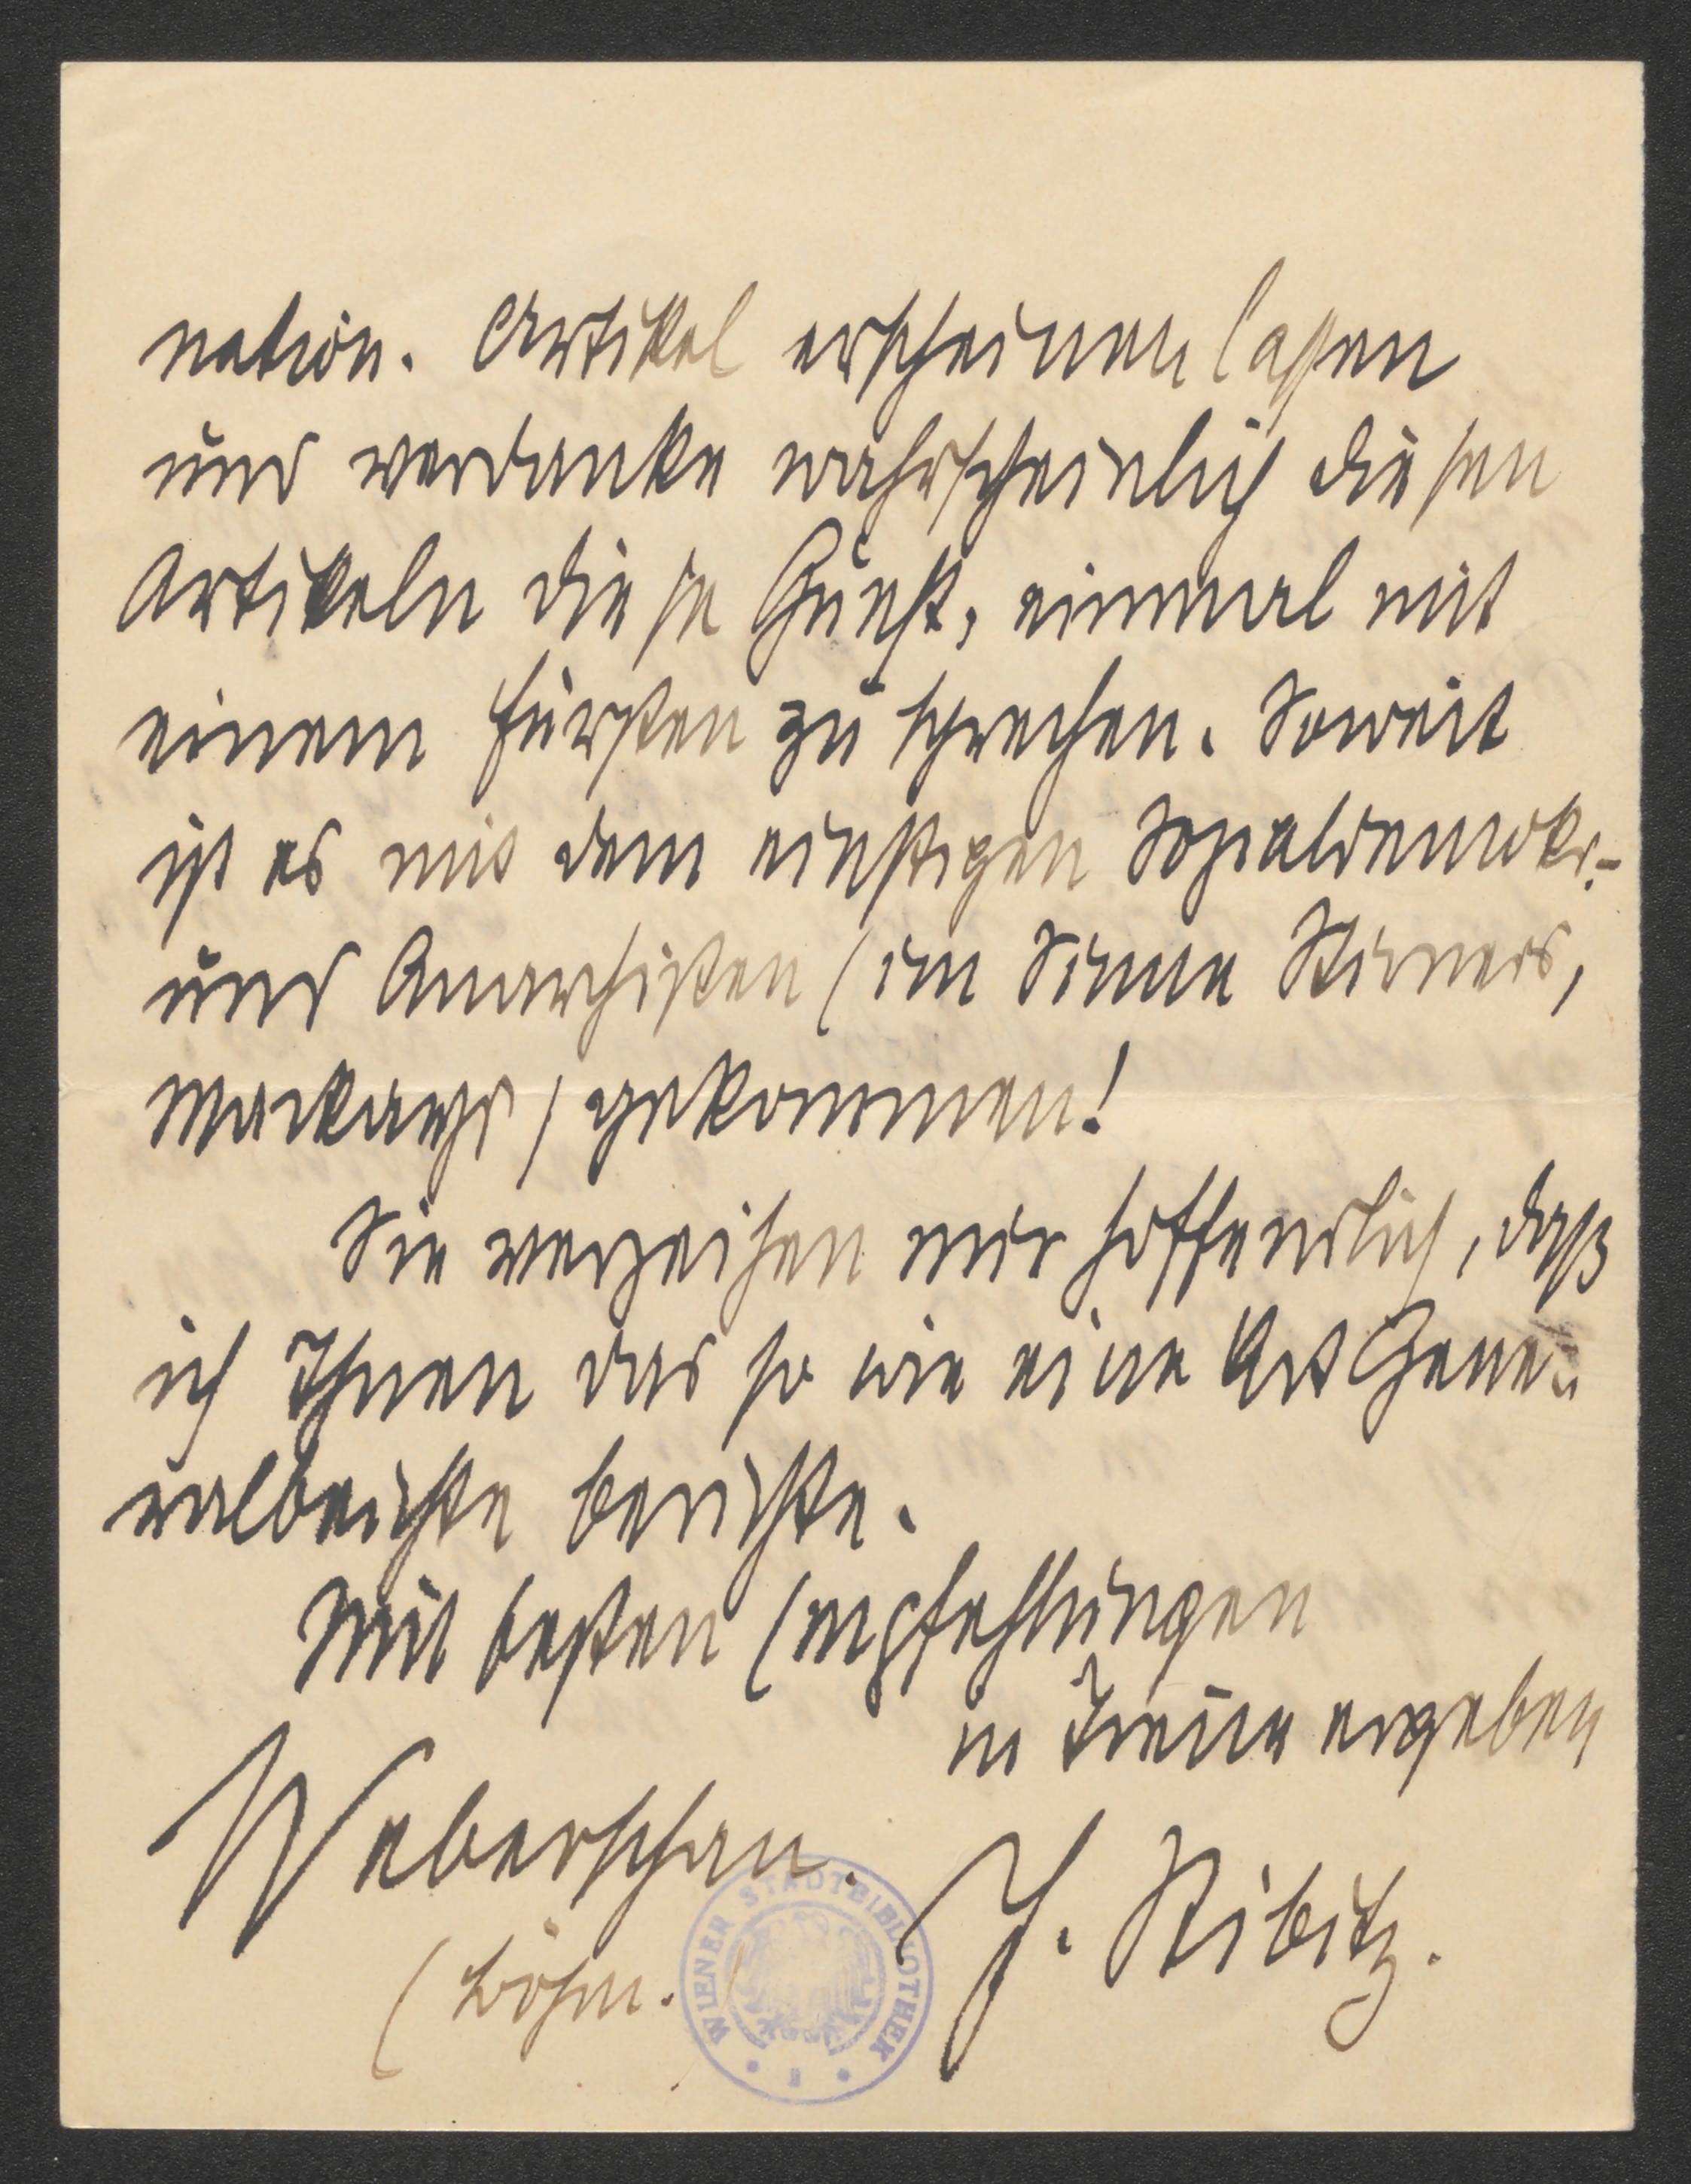 nation. Artikel erscheinen lassen
und verdanke wahrscheinlich diesen
Artikeln diese Gunst, einmal mit
einem Fürsten zu sprechen. Soweit
ist es mit dem einstigen Sozialdemokr.-
und Anarchisten (im Sinne Stirners,
Mackays) gekommen!
Sie verzeihen mir hoffentlich, daß
ich Ihnen das so wie eine Art Gene-
ralbeichte berichte.
Mit besten Empfehlungen
in Treue ergeben
Weberschan.
J. Stibitz.
(Böhm.)
WIENER STADTBIBLIOTHEK